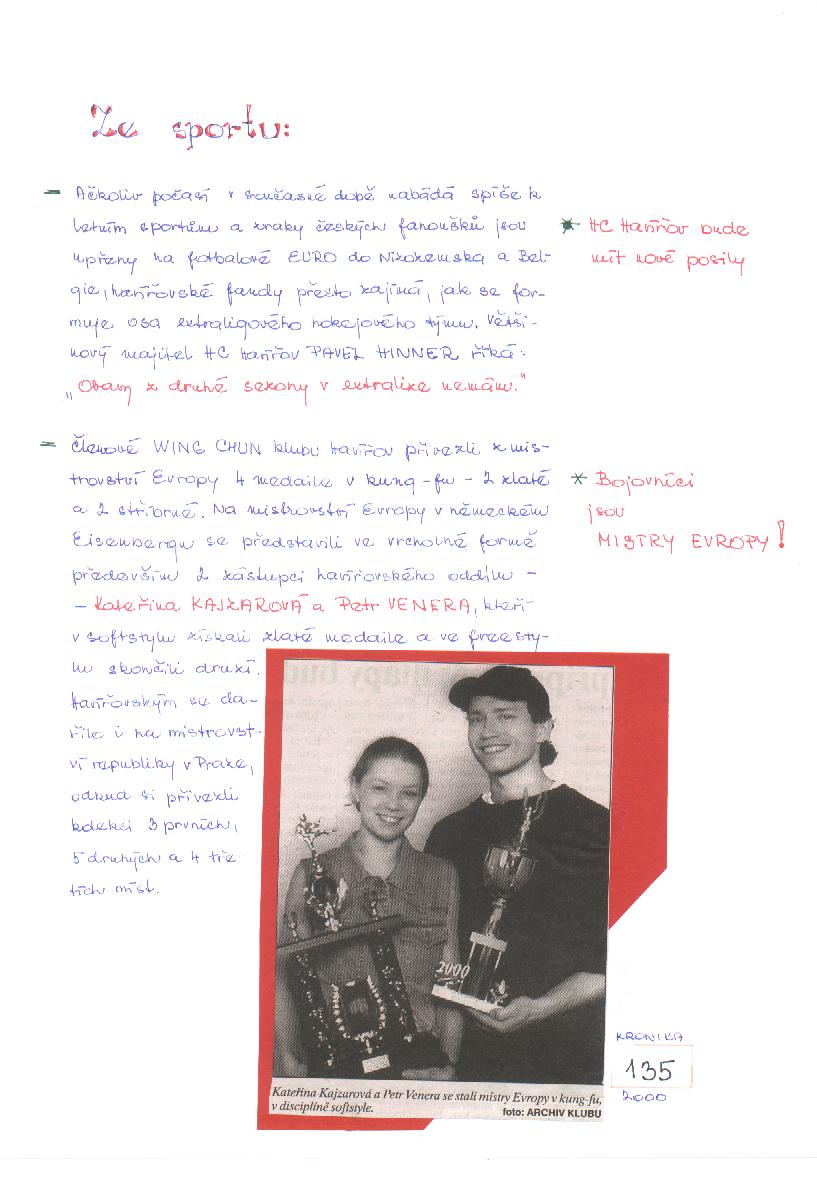 Ze sportu:
– Ačkoliv počasí v současné době nabádá spíše k
letním sportům a zraky českých fanoušků jsou
upřeny na fotbalové EURO do Nizozemska a Bel-
gie, havířovské fandy přesto zajímá, jak se for-
muje osa extraligového hokejového týmu. Větši-
nový majitel HC Havířov PAVEL HINNER říká:
„Obavy z druhé sezony v extralize nemám."
* HC Havířov bude
mít nové posily
– Členové WING CHUN klubu Havířov přivezli z mis-
trovství Evropy 4 medaile v kung-fu – 2 zlaté
a 2 stříbrné. Na mistrovství Evropy v německém
Eisenbergu se představili ve vrcholné formě
především 2 zástupci havířovského oddílu –
– Kateřina KAJZAROVÁ a Petr VENERA, kteří
v softstylu získali zlaté medaile a ve freesty-
lu skončili druzí.
Havířovským se da-
řilo i na mistrovst-
ví republiky v Praze,
odkud si přivezli
kolekci 3 prvních,
5 druhých a 4 tře-
tích míst.
* Bojovníci
jsou
MISTRY EVROPY!
2000
Kateřina Kajzarová a Petr Venera se stali mistry Evropy v kung-fu,
v disciplíně softstyle.
foto: ARCHIV KLUBU
KRONIKA
135
2000